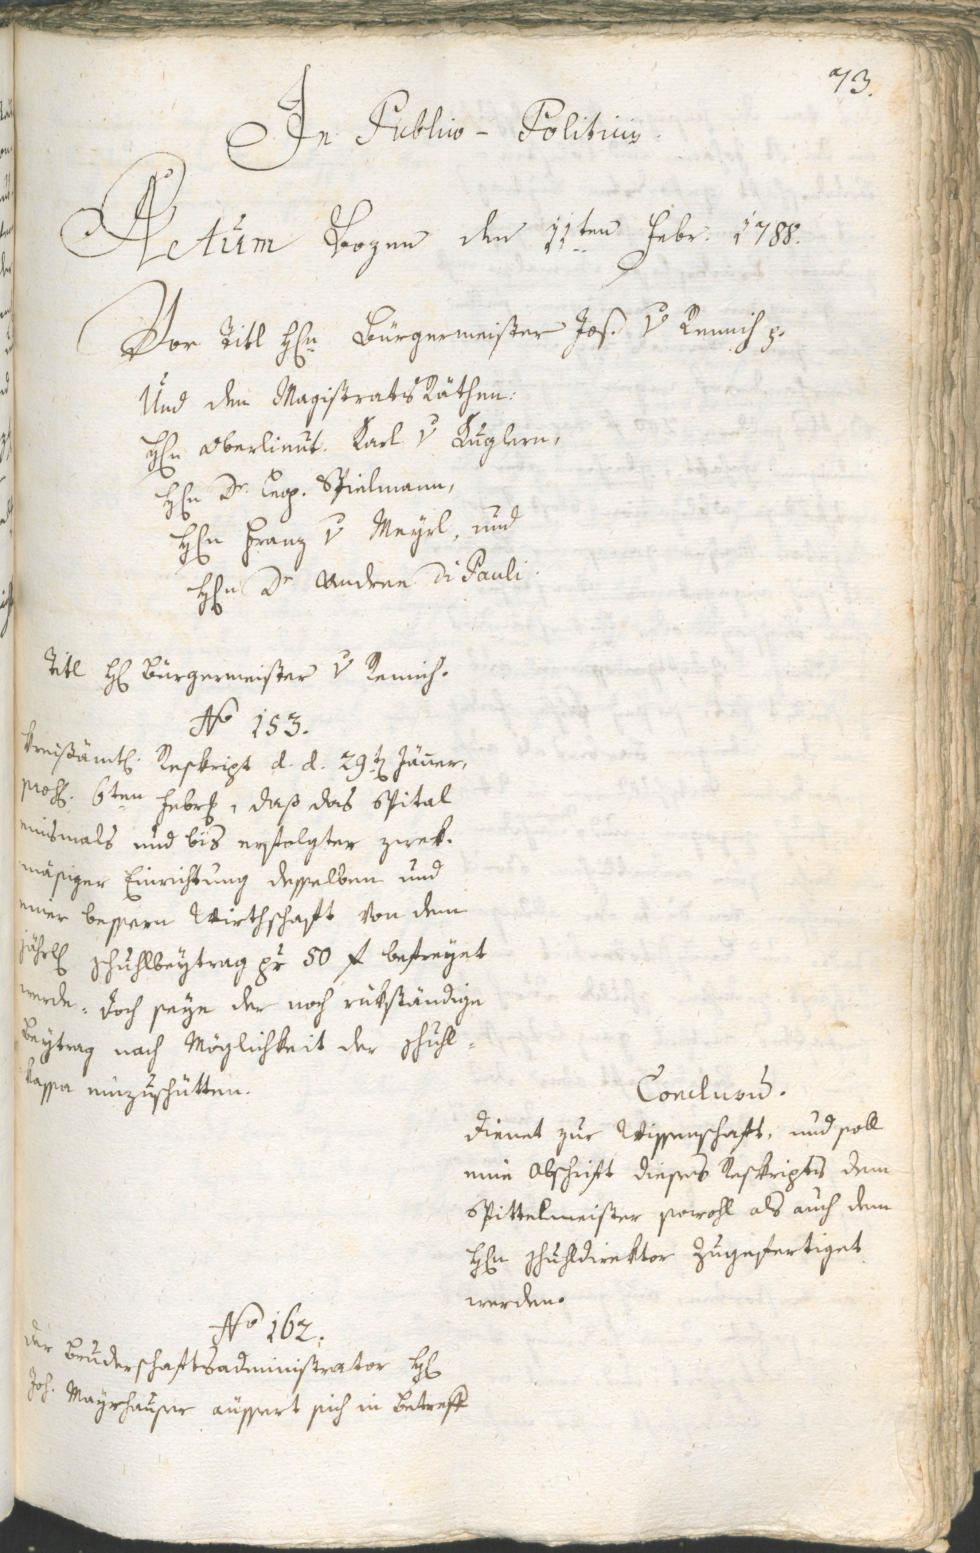 73.
In Publico-Politicis.
Actum Bozen den 11ten Febr: 1788.
Vor Titl Hℓn Bürgermeister Jos. v Remich p.
Und den Magistrats Räthen:
Hℓn Oberlieut. Karl v Kuglern,
Hℓn Dr. Leop. Spielmann,
Hℓn Franz v Meyrl, und
Hℓn Dr Andree Di Pauli.
Titl Hℓ Bürgermeister v Remich.
No 153.
Kreißämtl. Reskript d. d. 29t Jäner,
6ten Febr, daß das Spital
einsmals und bis erfolgter zwek-
mäsiger Einrichtung desselben und
einer bessern Wirthschaft von dem
jährl Schuhlbeytrag pr 50 f befreyet
werde. Doch seye der noch rükständige
Beytrag nach Möglichkeit der Schuhl-
kassa einzuschütten.
Conclusum.
Dienet zur Wissenschaft, und soll
eine Abschrift dieses Reskripts dem
Spittelmeister sowohl als auch dem
Hℓn Schuhldirektor zugefertiget
werden.
No 162.
Der Bruderschaftsadministrator Hℓ
Joh. Mayrhauser äussert sich in Betreff